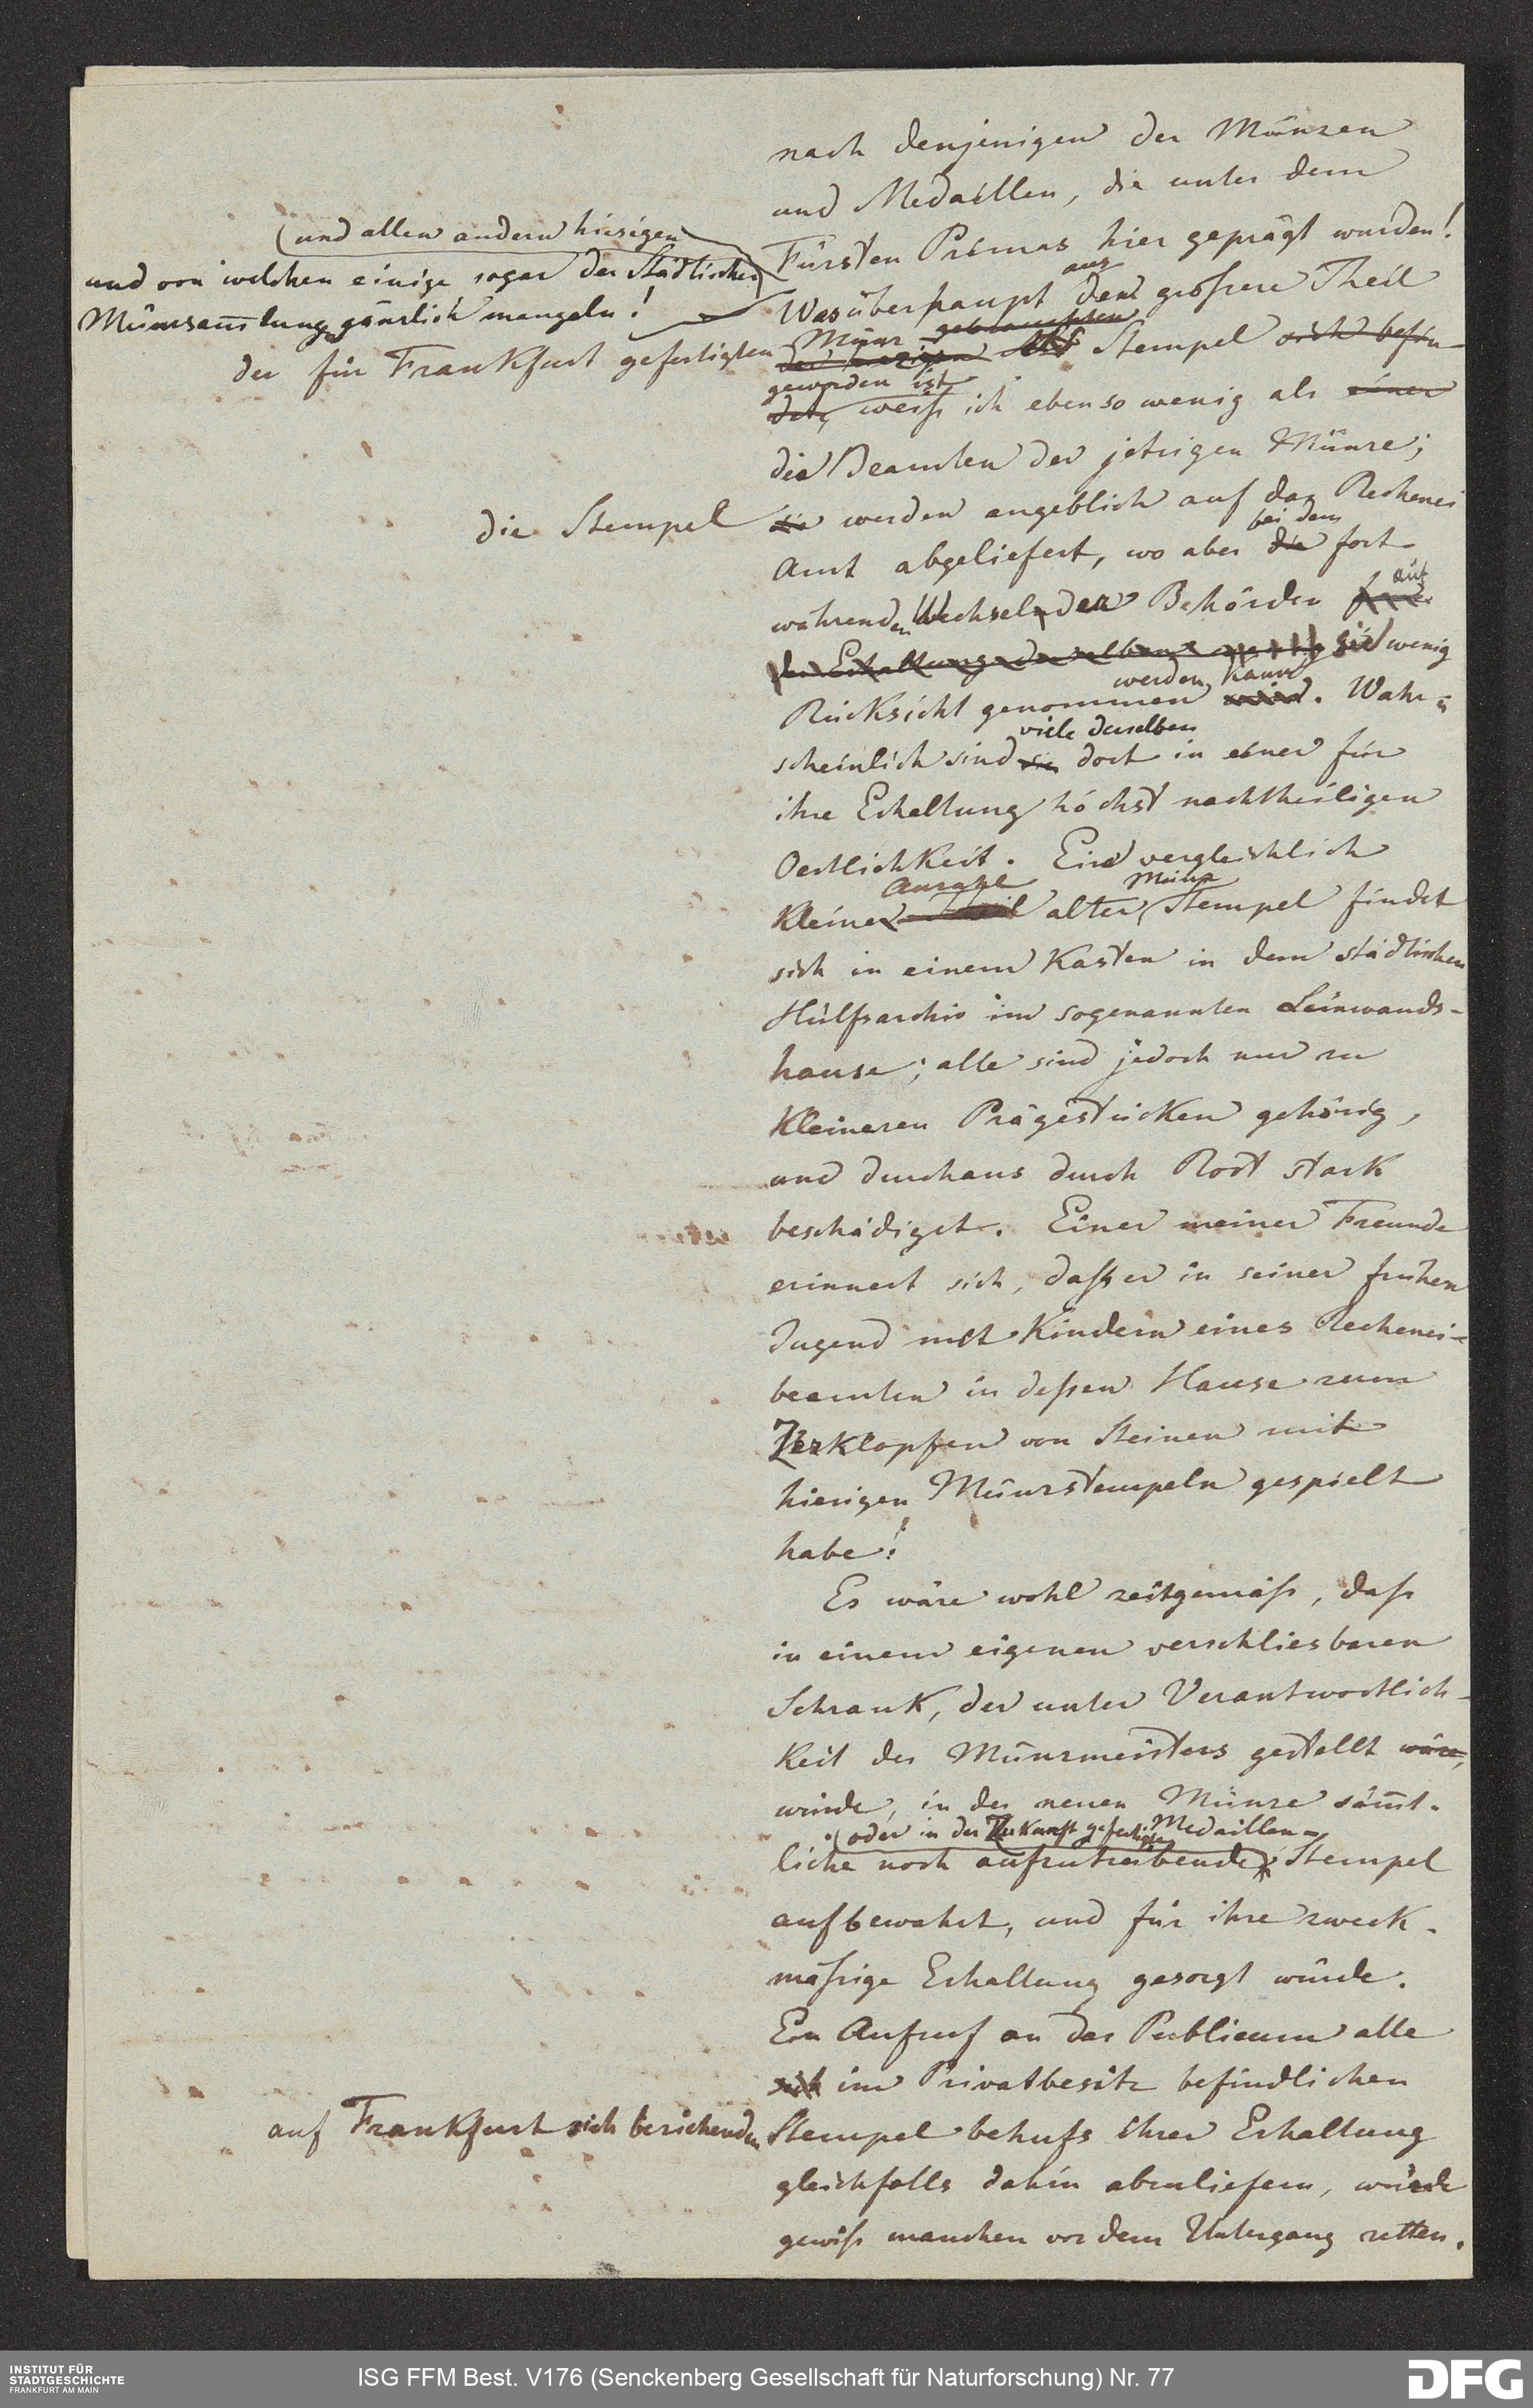 nach denjenigen der Münzen
und Medaillen, die unter dem
Fürsten Primas hier geprägt wurden!
(und allen andern hiesigen)
und von welchen einige sogar der Städtischen
Münzsam̄lung gänzlich mangeln!
Was überhaupt aus dem grössere Theil
der für Frankfurt gefertigten
Münz gebrauchten Stempel sich befin-
geworden ist
det, weiss ich ebenso wenig als einer
die Beamten der jetzigen Münze;
die Stempel
sie werden angeblich auf das Rechenei
bei dem
Amt abgeliefert, wo aber die fort-
auf
währenden Wechsel der Behörden
der Erhaltung derselben sie wenig
werden kann
Rücksicht genommen wird. Wahr-
viele derselben
scheinlich sind sie dort in einer für
ihre Erhaltung höchst nachtheiligen
Oertlichkeit. Eine vergleichlich
Anzahl Münz
kleine Theil alter Stempel findet
sich in einem Kasten in dem städtischen
Hülfsarchiv im sogenannten Leinwands-
hause; alle sind jedoch nur zu
kleineren Prägestücken gehörig,
und durchaus durch Rost stark
beschädiget. Einer meiner Freunde
erinnert sich, dass er in seiner frühen
Jugend mit Kindern eines Rechenei-
beamten in dessen Hause zum
Zerklopfen von Steinen mit
hiesigen Münzstempeln gespielt
habe!
Es wäre wohl zeitgemäss, dass
in einem eigenen verschliesbaren
Schrank, der unter Verantwortlich-
keit des Münzmeisters gestellt wäre,
würde, in der neuen Münze säm̄t-
(oder in der Zukunft gefertigte Medaillen-
liche noch aufzutreibende Stempel
aufbewahrt, und für ihre zweck-
mässige Erhaltung gesorgt würde.
Ein Aufruf an das Publicum alle
sich im Privatbesitz befindlichen
auf Frankfurt sich beziehenden
Stempel behufs ihrer Erhaltung
gleichfalls dahin abzuliefern, würde
gewiss manchen vor dem Untergang retten.
INSTITUT FÜR
STADTGESCHICHTE
FRANKFURT AM MAIN
ISG FFM Best. V176 (Senckenberg Gesellschaft für Naturforschung) Nr. 77
DFG